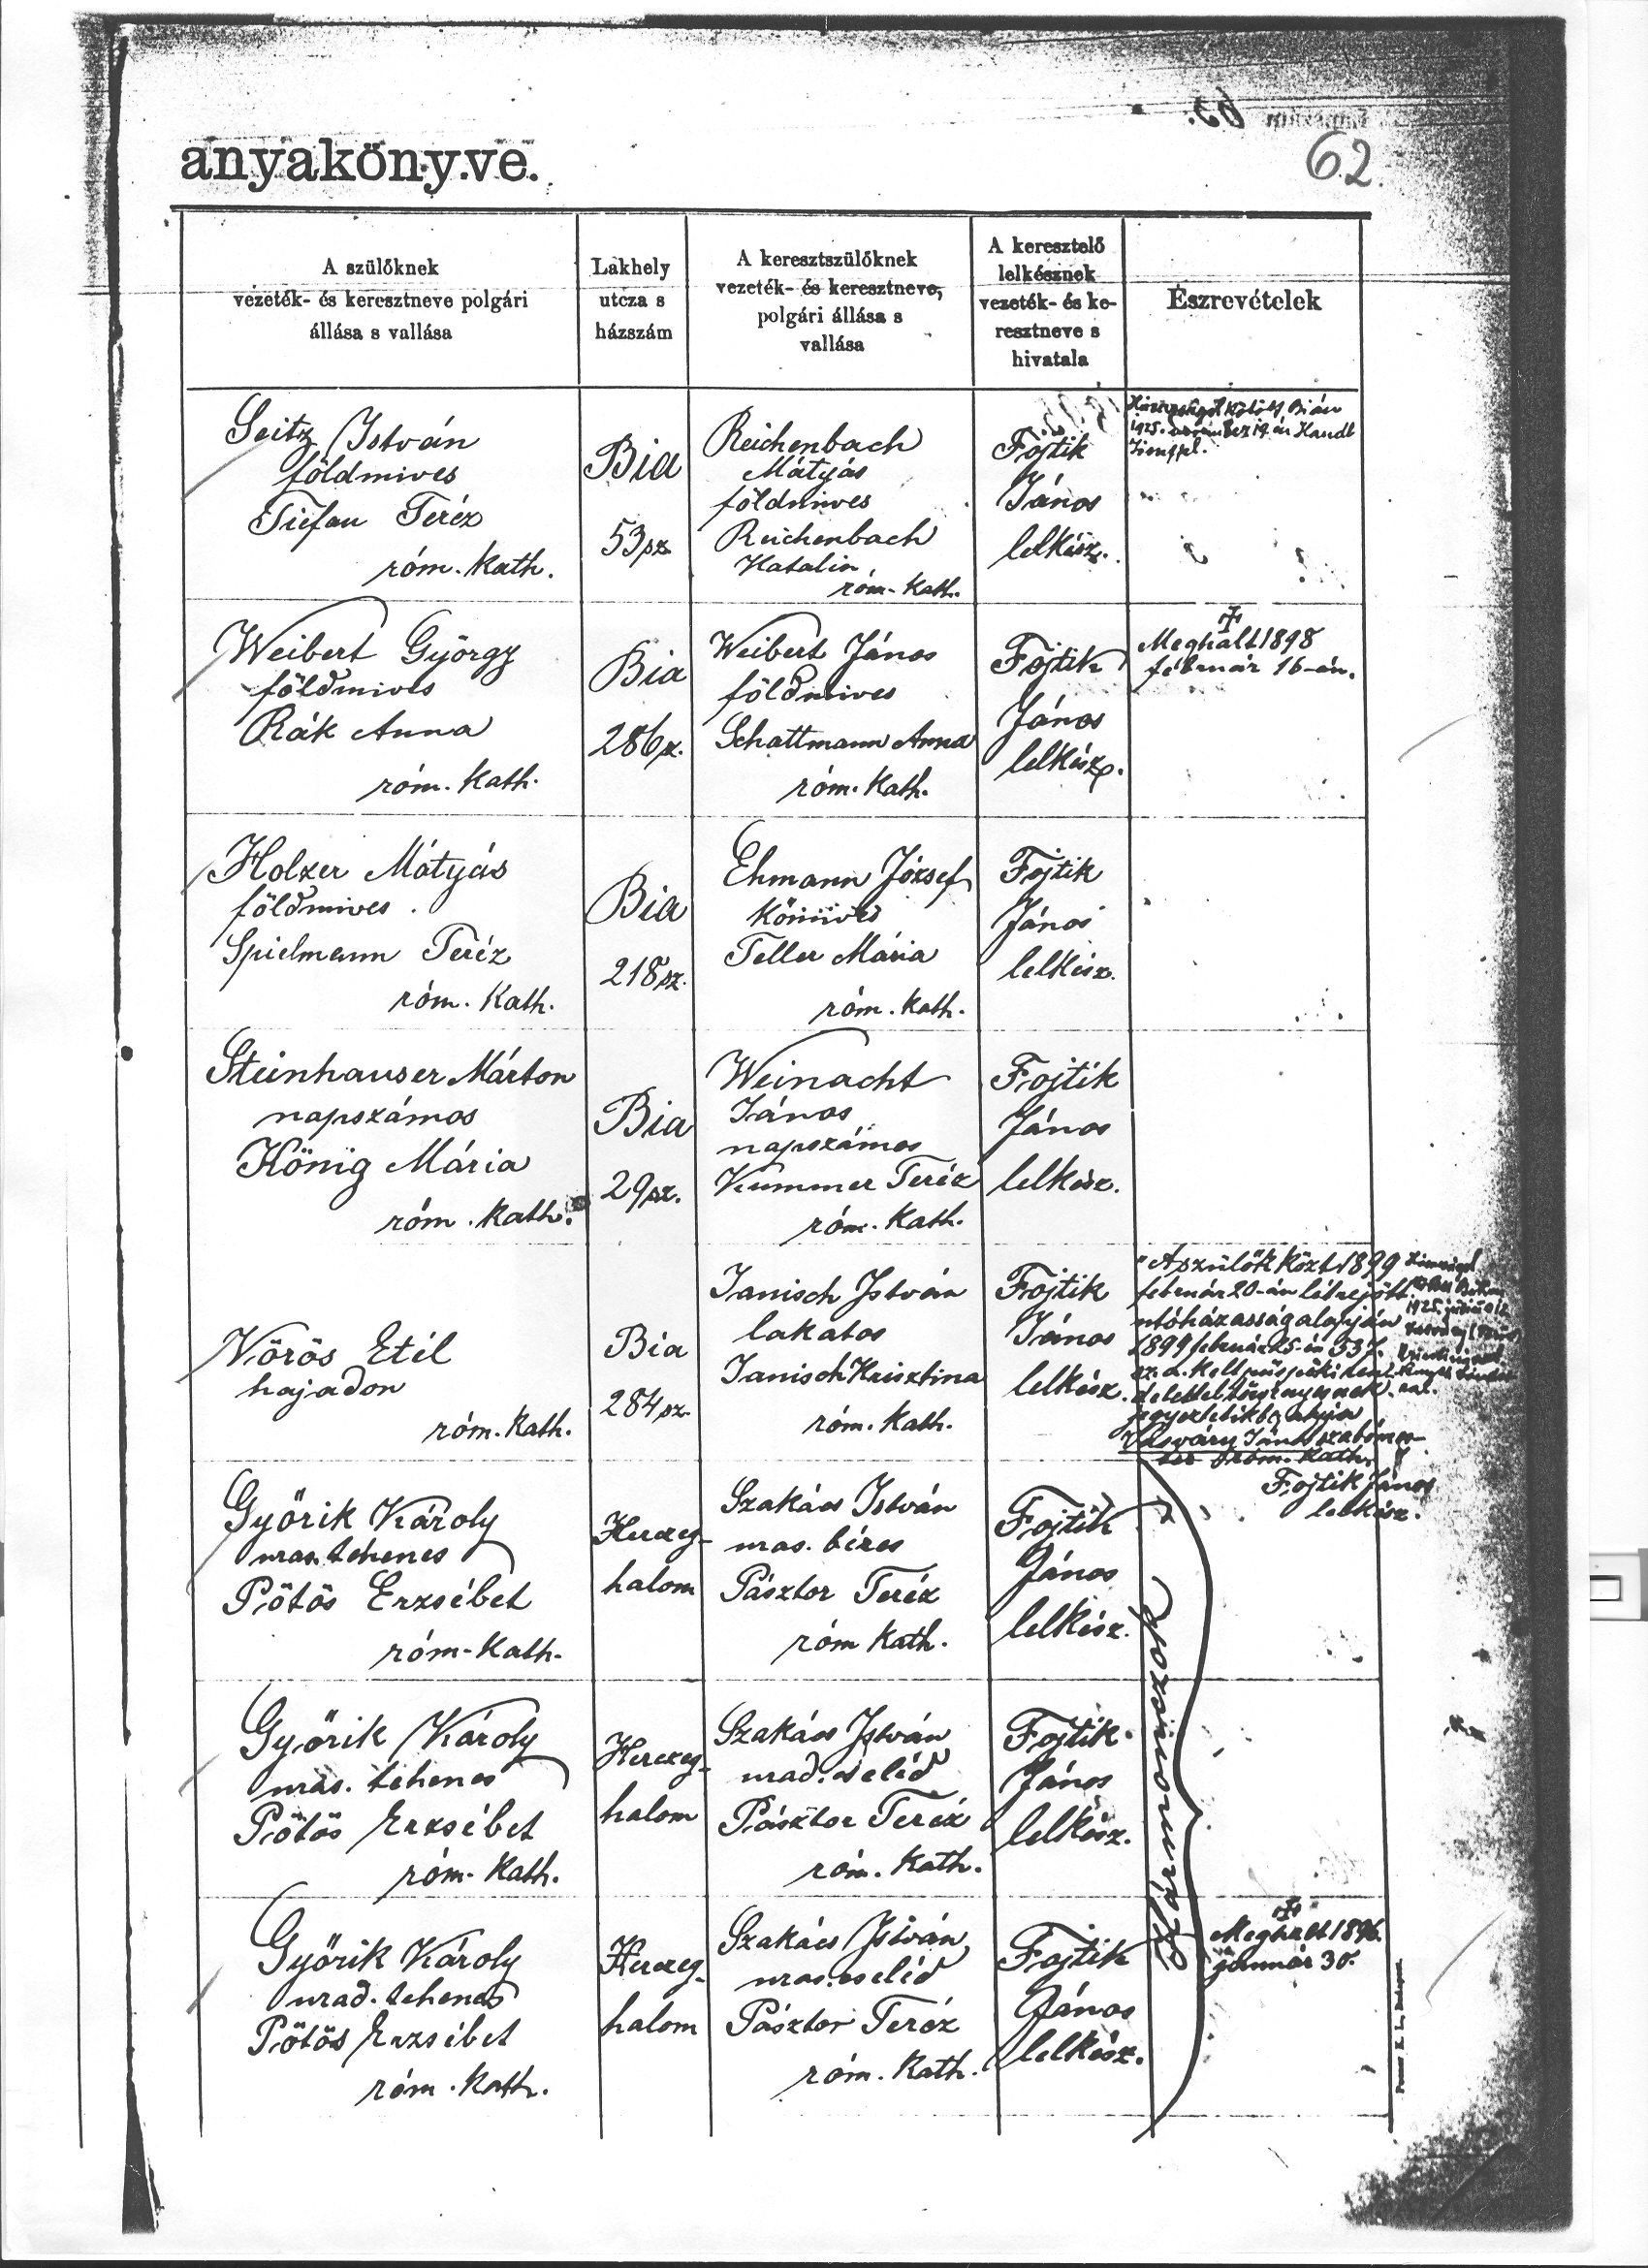 62.
anyakönyve.
A szülőknek
vezeték- és keresztneve polgári
állása s vallása
Lakhely
utcza s
házszám
A keresztszülőknek
vezeték- és keresztneve,
polgári állása s
vallása
A keresztelő
lelkésznek
vezeték- és ke-
resztneve s
hivatala
Észrevételek
Seitz István
földmives
Tiefau Teréz
róm. Kath.
Bia
53 sz.
Reichenbach
Mátyás
földmives
Reichenbach
Katalin
róm. Kath.
Fojtik
János
lelkész.
Bián
1925. 19. án
Weibert György
földmives
Rák Anna
róm. Kath.
Bia
286 sz.
Weibert János
földmives
Schattmann Anna
róm. Kath.
Fojtik
János
lelkész.
Meghalt 1898
február 16-án.
Holzer Mátyás
földmives.
Spielmann Teréz
róm. Kath.
Bia
218 sz.
Ehmann József
Kőmives
Teller Mária
róm. Kath.
Fojtik
János
lelkész.
Steinhauser Márton
napszámos
König Mária
róm. Kath.
Bia
29 sz.
Weinacht
János
napszámos
Kummer Teréz
róm. Kath.
Fojtik
János
lelkész.
Vörös Etél
hajadon
róm. Kath.
Bia
284 sz.
Janisch István
lakatos
Janisch Krisztina
róm. Kath.
Fojtik
János
lelkész.
A szülők Közt 1899
február 20-án létrejött
utóházasság alapján
1899 február 25-én 337.
sz. a. Kelt püspöki
törvényesnek
atyja
Vasváry János szabómes-
ter róm. Kath.
Fojtik János
lelkész.
Győrik Károly
uras. tehenes
Pötös Erzsébet
róm. Kath.
Herczeg-
halom
Szakács István
uras. béres
Pásztor Teréz
róm Kath.
Fojtik
János
lelkész.
Hármasikrek
Győrik Károly
uras. tehenes
Pötös Erzsébet
róm. Kath.
Herczeg-
halom
Szakács István
urad. cseléd
Pásztor Teréz
róm. Kath.
Fojtik
János
lelkész.
Győrik Károly
urad. tehenes
Pötös Erzsébet
róm. Kath.
Herczeg-
halom
Szakács István
uras. cseléd
Pásztor Teréz
róm. Kath.
Fojtik
János
lelkész.
Meghalt 1896.
január 30.